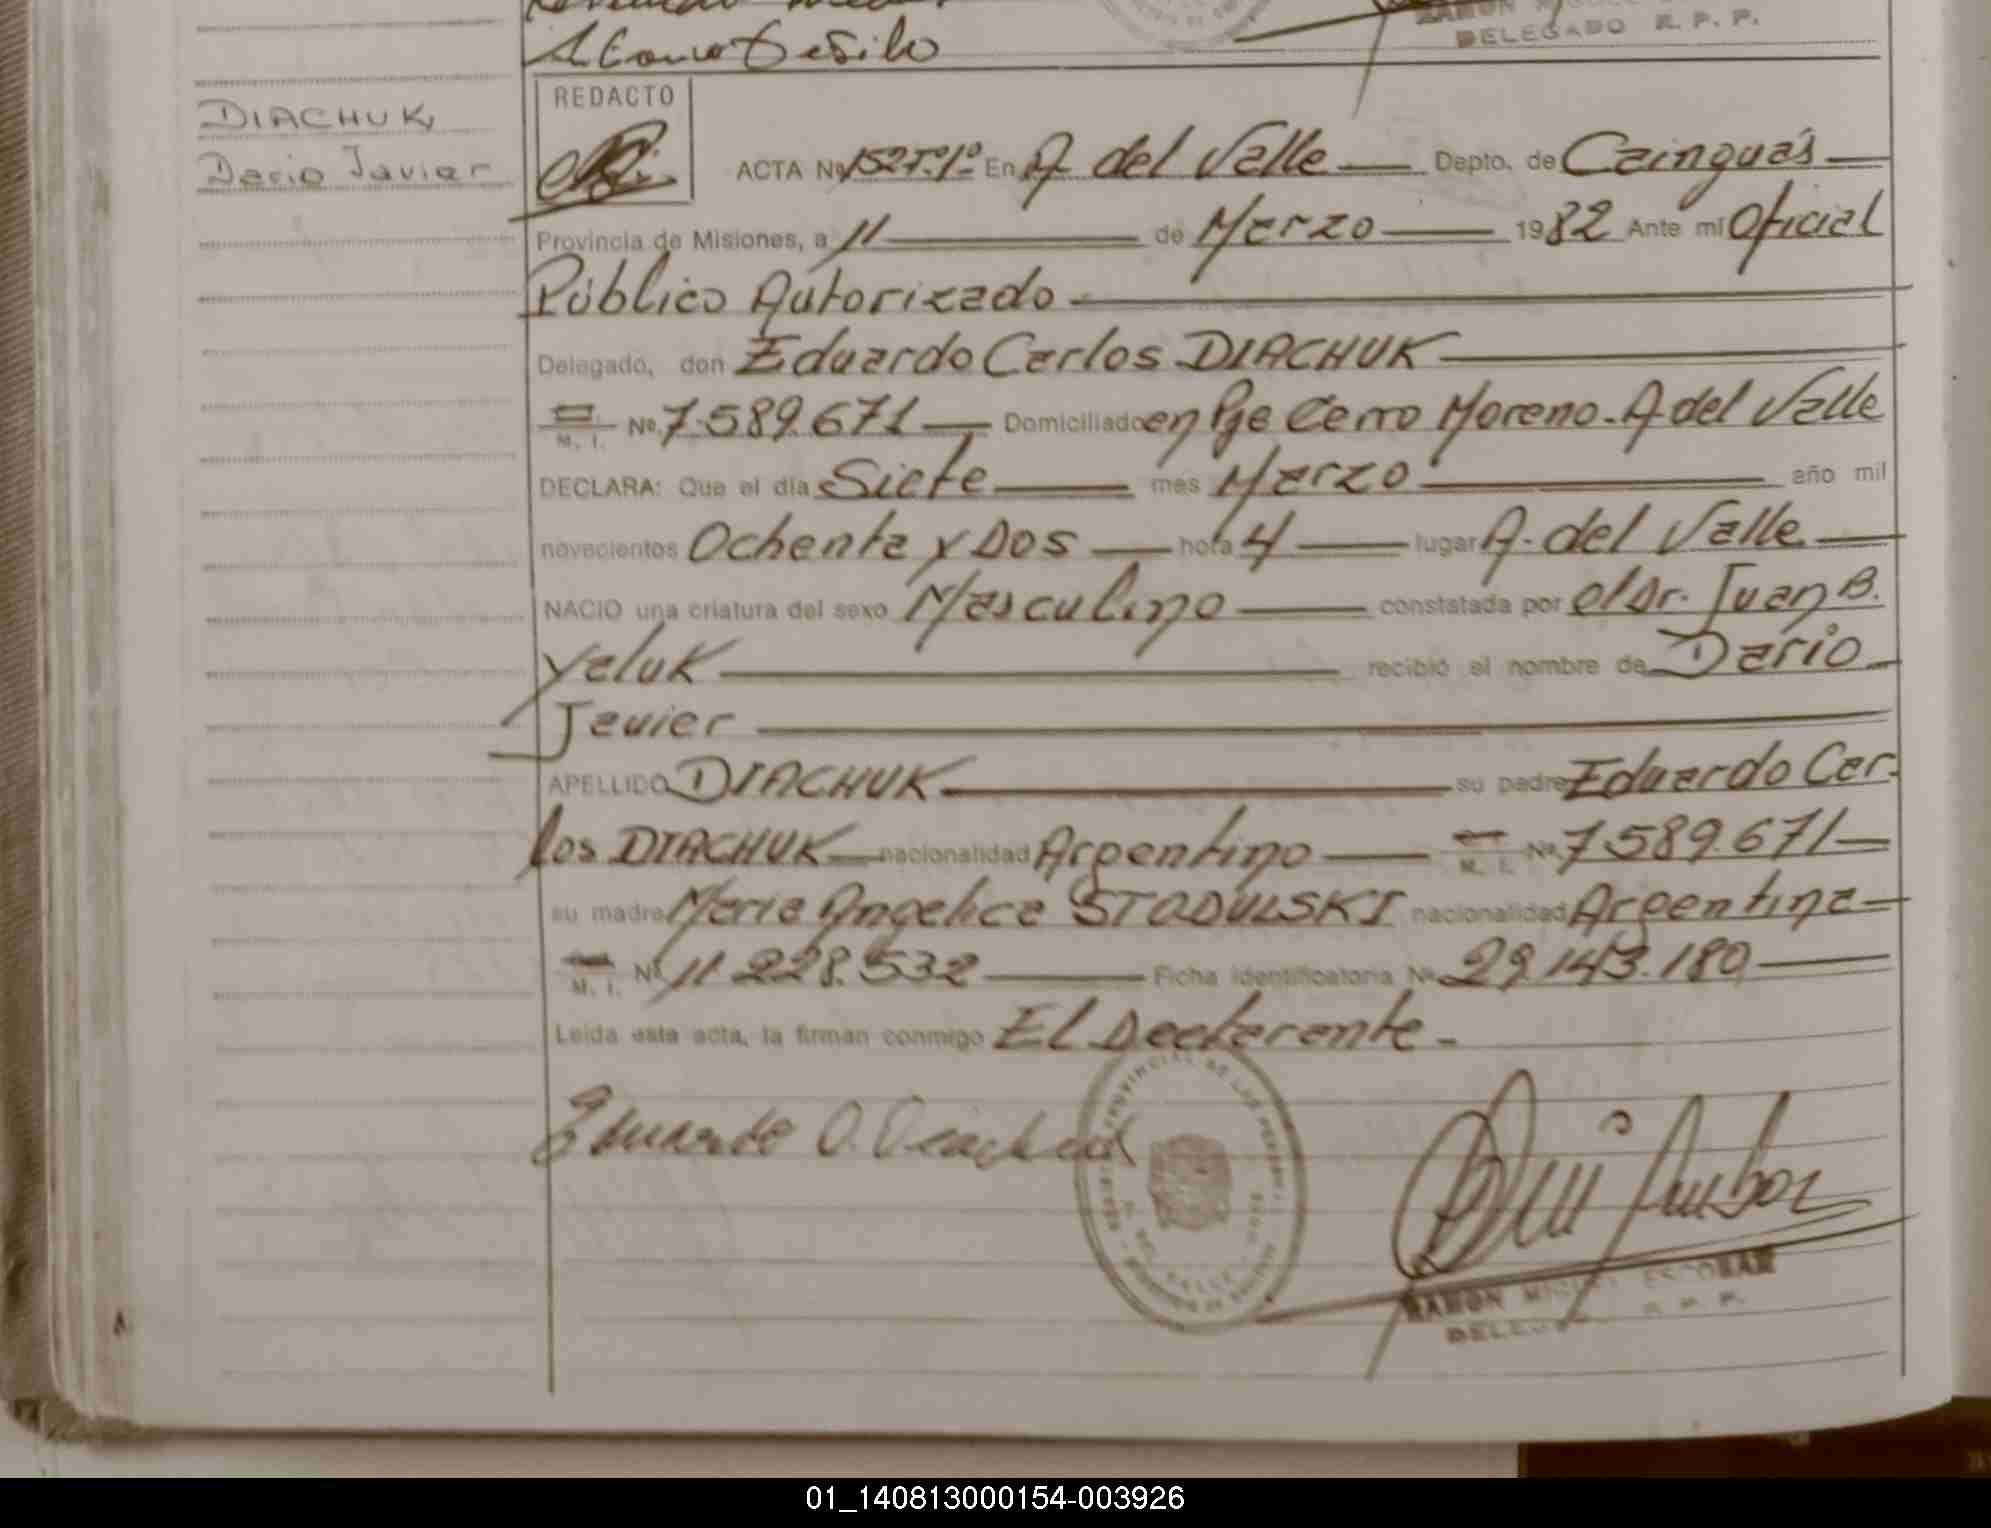 DELEGADO R. P. P.
DIACHUK,
Dario Javier
REDACTO
ACTA Nº 152 Tº 1º En A. del Valle Depto. de Cainguás
Provincia de Misiones, a 11 de Marzo 1982 Ante mí Oficial
Público Autorizado
Delegado, don Eduardo Carlos DIACHUK
M. I. Nº 7.589.671 Domiciliado en Pje Cerro Moreno-A. del Valle
DECLARA: Que el día Siete mes Marzo año mil
novecientos Ochenta y Dos hora 4 lugar A. del Valle
NACIO una criatura del sexo Masculino constatada por el Dr. Juan B.
Yaluk recibió el nombre de Dario
Javier
APELLIDO DIACHUK su padre Eduardo Car-
los DIACHUK nacionalidad Argentino M. I. Nº 7.589.671
su madre Maria Angelica STADULSKI nacionalidad Argentina
M. I. Nº 11.228.532 Ficha identificatoria Nº 29.143.180
Leída esta acta, la firman conmigo El Declarante.-
Eduardo C. Diachuk
RAMON MIGUEL ESCOBAR
DELEGADO R. P. P.
01_140813000154-003926